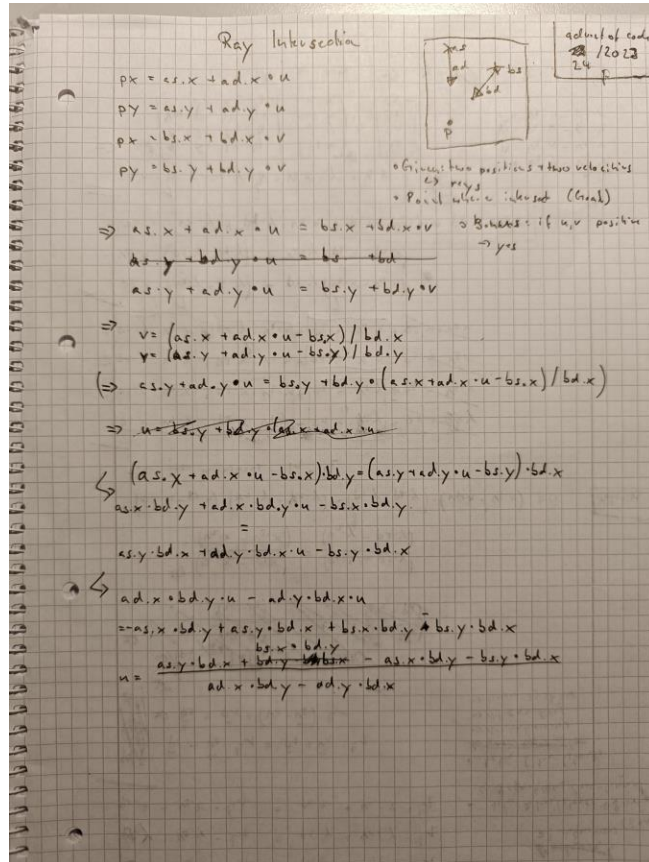 Ray Intersection
advent of code
/2023
24
as
ad
bs
bd
p
px = as.x + ad.x • u
py = as.y + ad.y • u
px = bs.x + bd.x • v
py = bs.y + bd.y • v
• Given: two positions + two velocities
↳ rays
• Point where intersect (Goal)
if u,v positive
→ yes
⇒ as.x + ad.x • u = bs.x + bd.x • v
as.y + bd.y • u = bs + bd
as.y + ad.y • u = bs.y + bd.y • v
⇒ v = (as.x + ad.x • u - bs.x) / bd.x
v = (as.y + ad.y • u - bs.y) / bd.y
(⇒ as.y + ad.y • u = bs.y + bd.y • (as.x + ad.x • u - bs.x) / bd.x)
⇒ u = bs.y + bd.y • (as.x + ad.x • u
↳ (as.x + ad.x • u - bs.x) • bd.y = (as.y + ad.y • u - bs.y) • bd.x
as.x • bd.y + ad.x • bd.y • u - bs.x • bd.y
=
as.y • bd.x + ad.y • bd.x • u - bs.y • bd.x
↳ ad.x • bd.y • u - ad.y • bd.x • u
= -as.x • bd.y + as.y • bd.x + bs.x • bd.y - bs.y • bd.x
bs.x • bd.y
u = as.y • bd.x + bd.y bs.x - as.x • bd.y - bs.y • bd.x
ad.x • bd.y - ad.y • bd.x